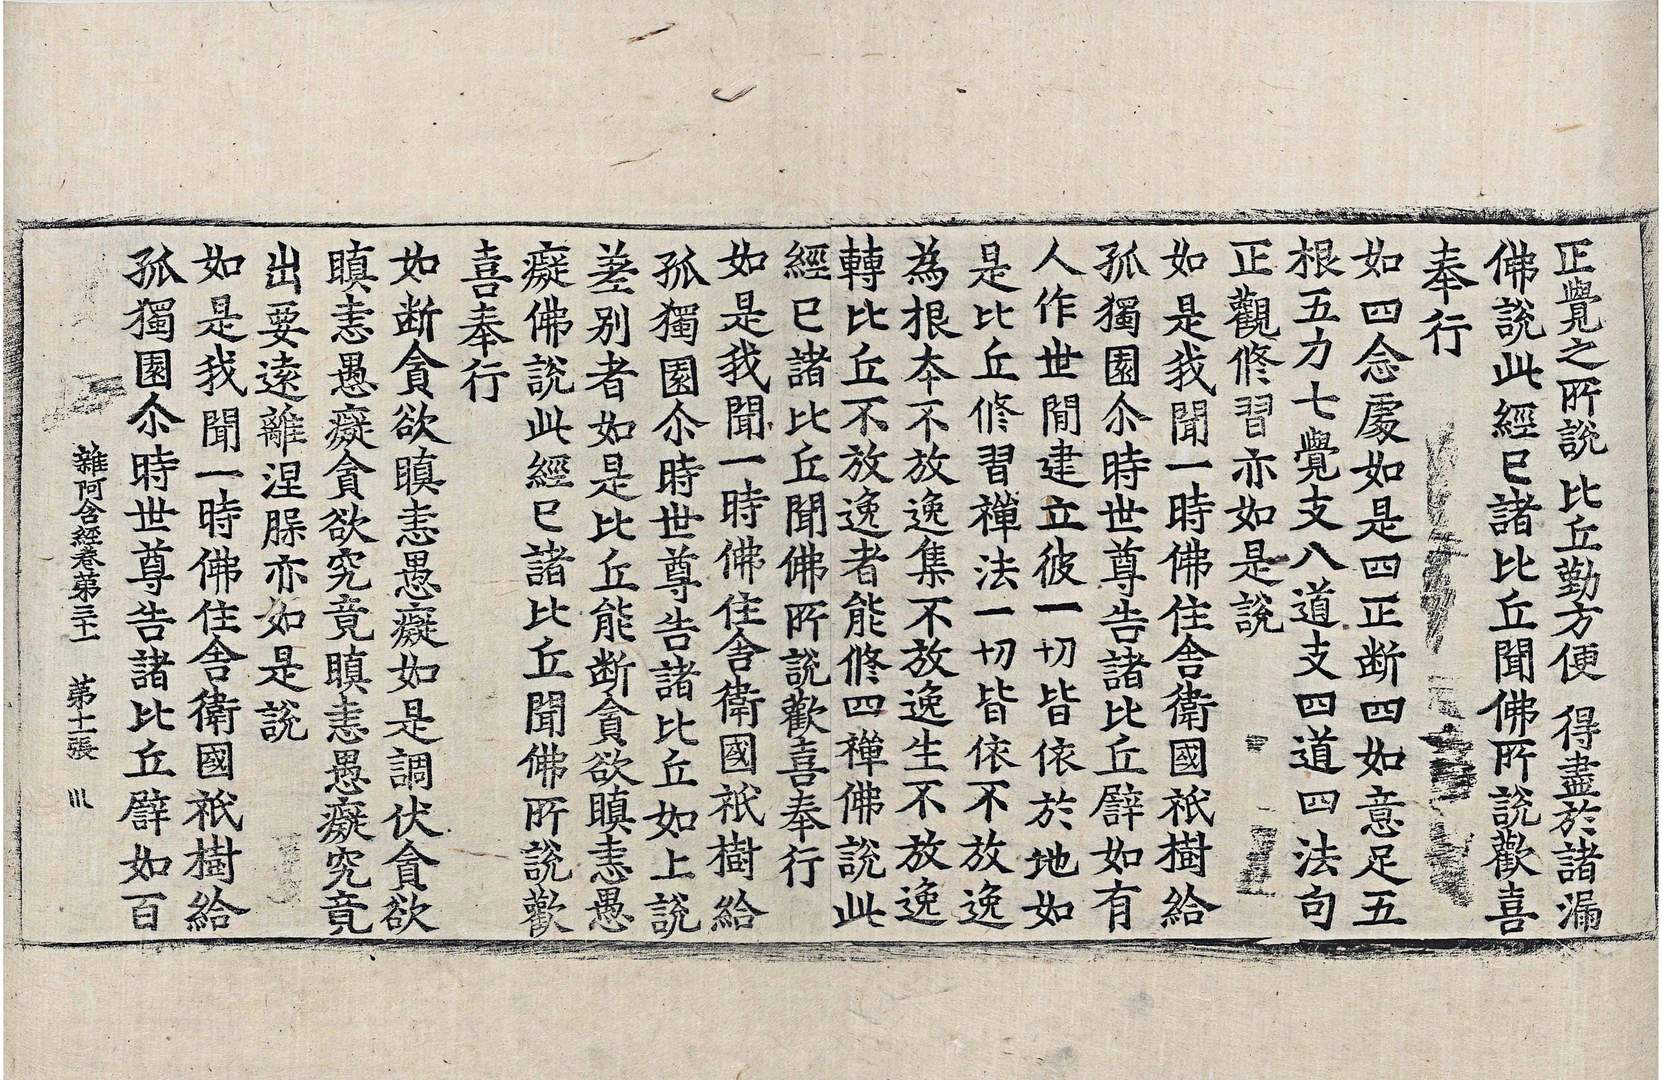 正覺之所說比丘勤方便得盡於諸漏
佛說此經已諸比丘聞佛所說歡喜
奉行
如四念處如是四正断四如意足五
根五力七覺支八道支四道四法句
正觀修習亦如是說
如是我聞一時佛住舍衛國祇樹給
孤獨園尒時世尊告諸比丘譬如有
人作世閒建立彼一切皆依於地如
是比丘修習禪法一切皆依不放逸
為根夲不放逸集不放逸生不放逸
轉比丘不放逸者能修四禪佛說此
經已諸比丘聞佛所說歡喜奉行
如是我聞一時佛住舍衛國祇樹給
孤獨園尒時世尊告諸比丘如上說
差別者如是比丘能断貪欲瞋恚愚
癡佛說此經已諸比丘聞佛所說歡
喜奉行
如断貪欲瞋恚愚癡如是調伏貪欲
瞋恚愚癡貪欲究竟瞋恚愚癡究竟
出要遠離涅脲亦如是說
如是我聞一時佛住舍衛國祇樹給
孤獨園尒時世尊告諸比丘譬如百
雜阿含經卷第三十一 第十二張